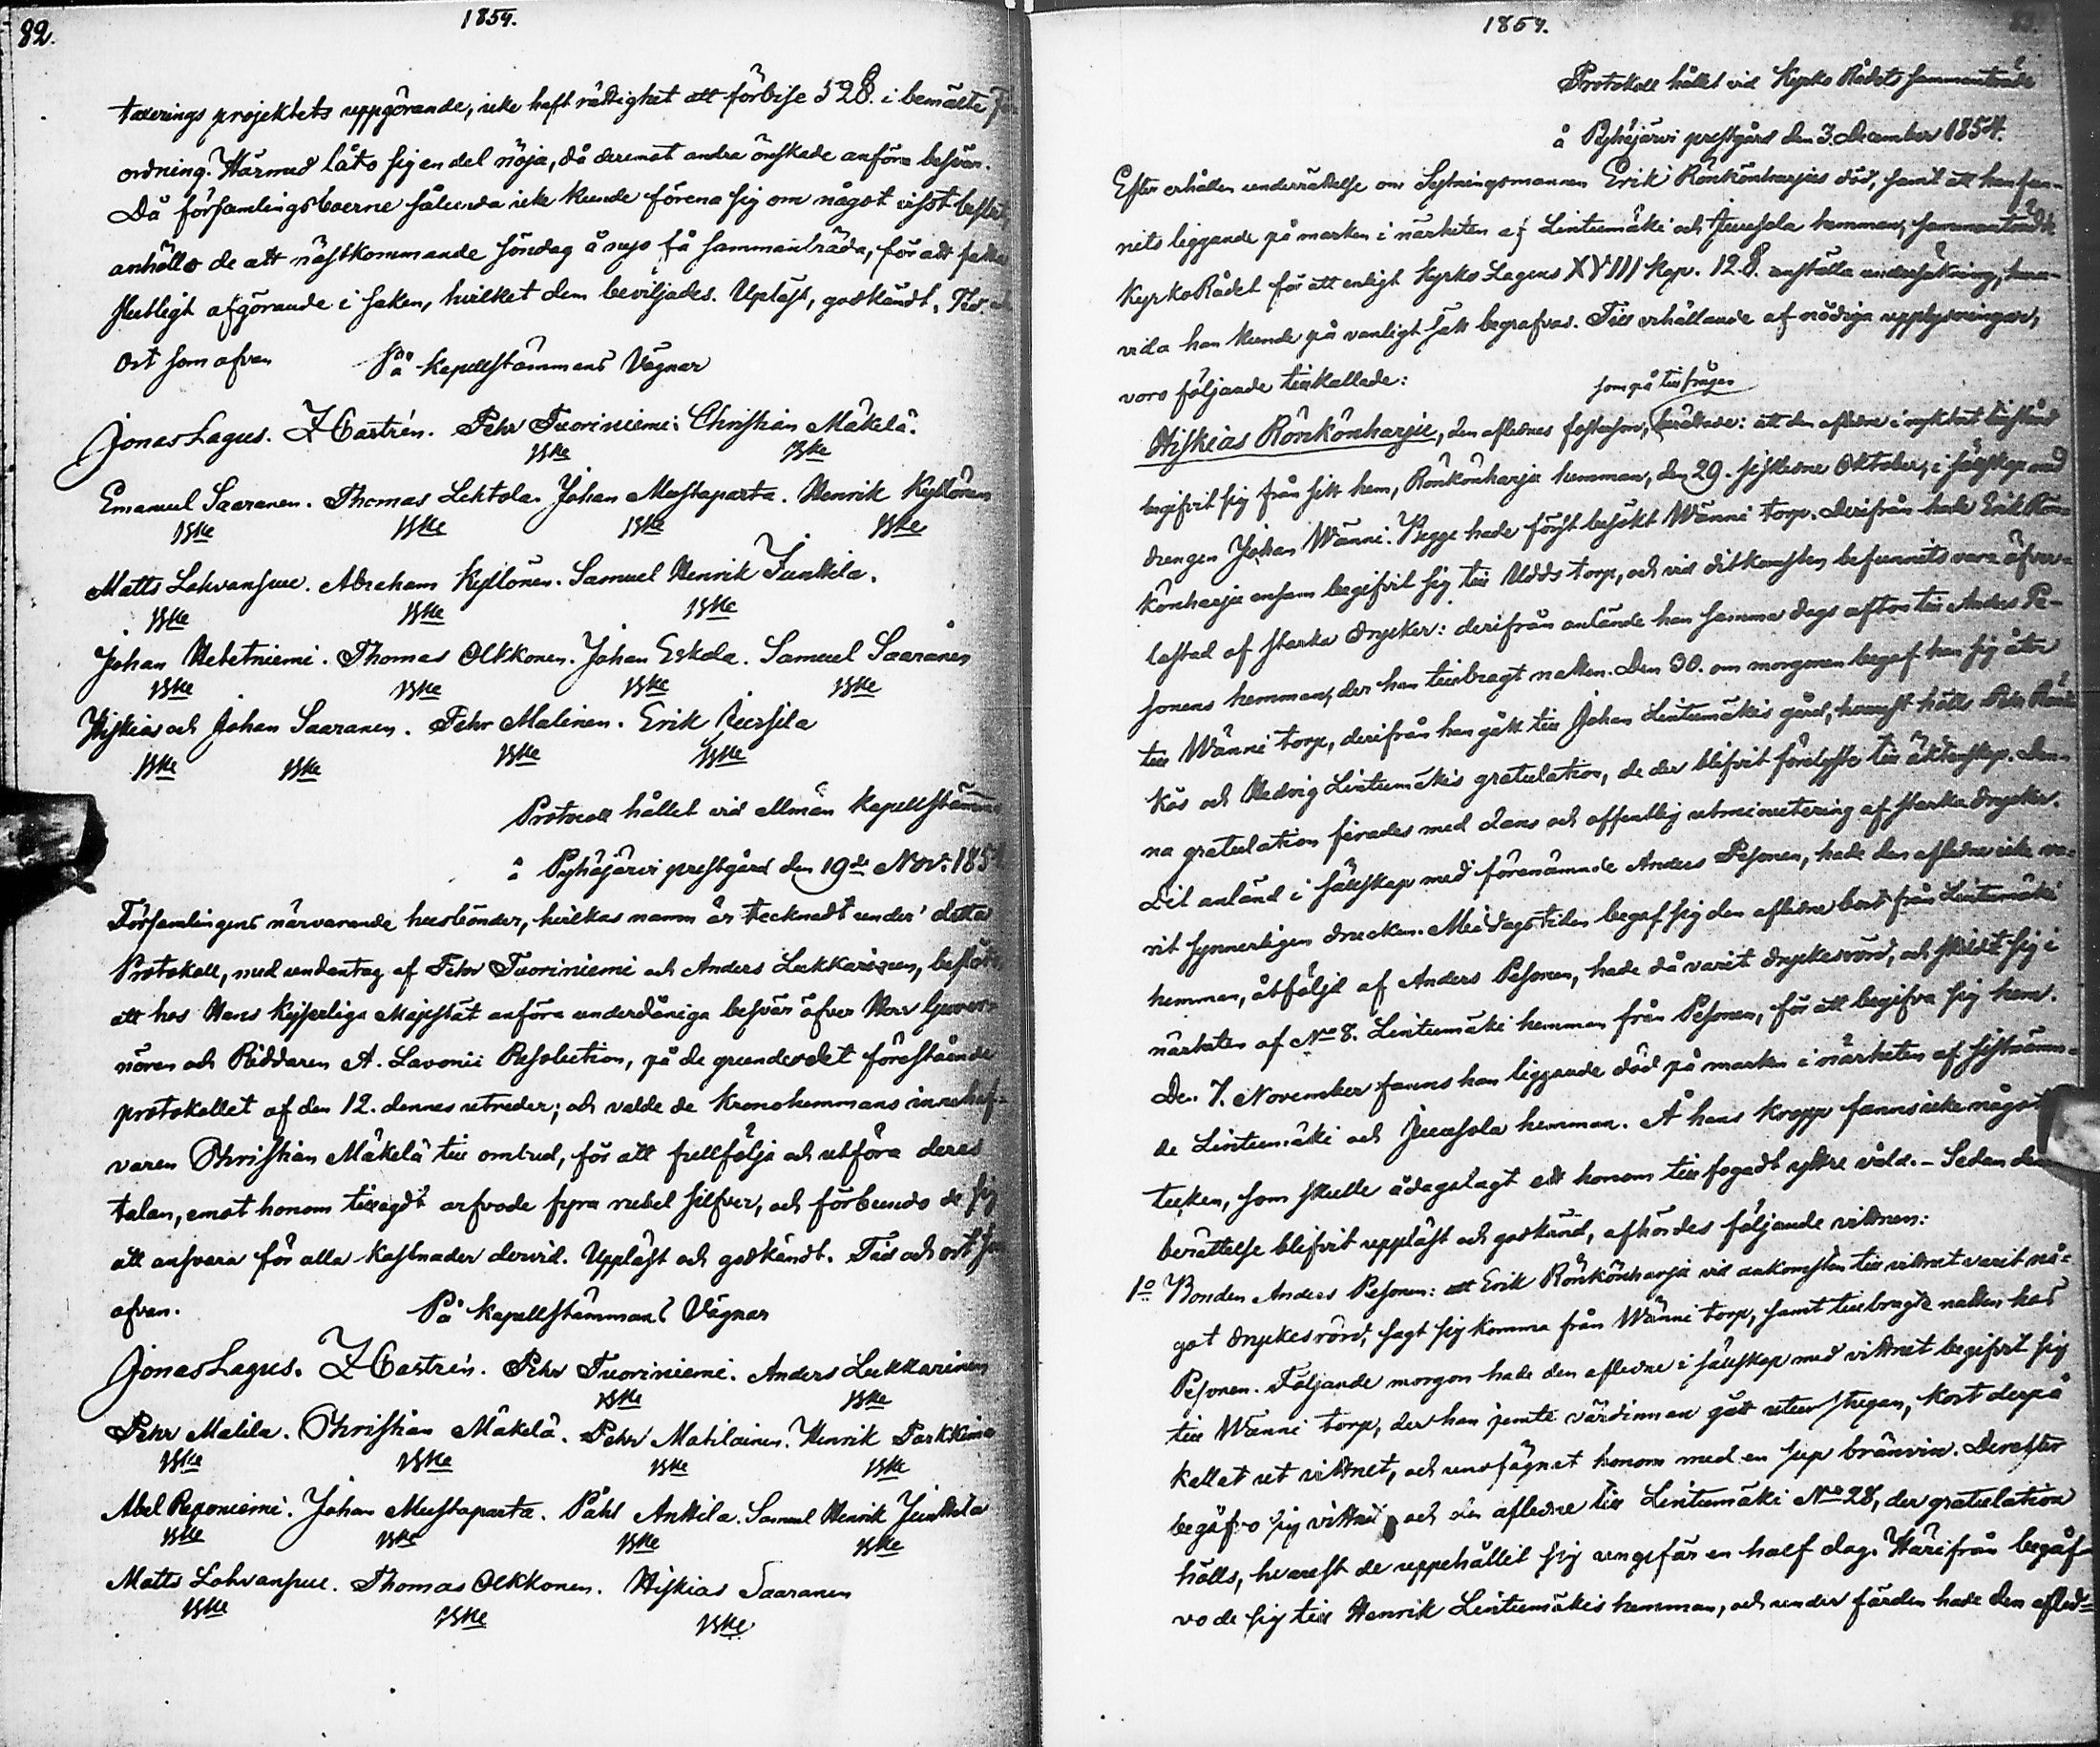 82.
1854.
taxerings projektets uppgörande, icke haft rättighet att förbise 52 §. i bemälte
ordning. Härmed låto sig en del nöja, då deremot andra önskade anföra besvär.
Då församlingsboerne sålunda icke kunde förena sig om något visst beslut,
anhöllo de att nästkommande söndag å nyo få sammanträda, för att fatta
slutligt afgörande i saken, hvilket dem beviljades. Upläst, godkändt, Tid
ort som ofvan
På Kapellstämmans Vägnar
Jonas Lagus. Z Castrén. Pehr Tuoriniemi. Christian Mäkelä.
Bske Bske
Emanuel Saaranen. Thomas Lehtola. Johan Mustaparta. Henrik Kyllönen
Bske Bske Bske Bske
Matts Lohvansuu. Abraham Kyllönen. Samuel Henrik Junttila.
Bske Bske Bske
Johan Hietaniemi. Thomas Olkkonen. Johan Eskola. Samuel Saaranen
Bske Bske Bske Bske
Hiskias och Johan Saaranen. Pehr Malinen. Erik Jussila
Bske Bske Bske Bske
Protocoll hållet vid allmän Kapellstämma
å Pyhäjärvi prestgård den 19de Nov. 1854
Församlingens närvarande husbönder, hvilkas namn är tecknadt under detta
Protokoll, med undantag af Pehr Tuoriniemi och Anders Lukkarinen, beslöto
att hos Hans Kejserliga Majestät anföra underdåniga besvär öfver Herr Guver-
nören och Riddaren A. Lavonii Resolution, på de grunder det förestående
protokollet af den 12. dennes utreder; och valde de Kronohemmans innehaf-
varen Christian Mäkelä till ombud, för att fullfölja och utföra deras
talan, emot honom tillagdt arfvode fyra rubel silfver, och förbundo de sig
att ansvara för alla kostnader dervid. Uppläst och godkändt. Tid och ort som
ofvan.
På Kapellstämmans Vägnar
Jonas Lagus. Z Castrén. Pehr Tuoriniemi. Anders Lukkarinen
Bske Bske
Pehr Malila. Christian Mäkelä. Pehr Matilainen. Henrik Parkkima
Bske Bske Bske Bske
Abel Reponiemi. Johan Mustaparta. Påhl Anttila. Samuel Henrik Junttila
Bske Bske Bske Bske
Matts Lohvansuu. Thomas Olkkonen. Hiskias Saaranen
Bske Bske Bske
1854.
Protokoll hållet vid Kyrko Rådets sammanträde
å Pyhäjärvi prestgård den 3. December 1854.
Efter erhållen underrättelse om Sytningsmannen Erik Rönkönharjus död, samt att han fun-
nits liggande på marken i närheten af Lintumäki och Juusola hemman, sammanträdde
KyrkoRådet för att enligt Kyrko Lagens XVIII Kap. 12 §. anställa undersökning, huru-
vida han kunde på vanligt sätt begrafvas. Till erhållande af nödiga upplysningar,
voro följande tillkallade:
som på tillfrågan
Hiskias Rönkönharju, den aflednes fosterson, berättade: att den aflidne i nyktert tillstånd
begifvit sig från sitt hem, Rönkönharju hemman, den 29. sistledne Oktober, i sällskap med
drengen Johan Wänni. Begge hade först besökt Wänni torp. Derifrån hade Erik Rön-
könharju ensam begifvit sig till Udds torp, och vid ditkomsten befunnits vara öfver-
lastad af starka drycker: derifrån anlände han samma dags afton till Anders Pe-
sonens hemman, der han tillbragt natten. Den 30. om morgonen begaf han sig åter
till Wänni torp, derifrån han gått till Johan Lintumäkis gård, hvarest hölls Pehr
kös och Hedvig Lintumäkis gratulation, de der blifvit förelyste till äktenskap. Den-
na gratulation firades med dans och offentlig utminutering af starka drycker.
Dit anländ i sällskap med förenämnde Anders Pesonen, hade den aflidne icke va-
rit synnerligen drucken. Middagstiden begaf sig den aflidne bort från Lintumäki
hemman, åtföljd af Anders Pesonen, hade då varit dryckesrörd, och skildt sig i
närheten af No 8. Lintumäki hemman från Pesonen, för att begifva sig hem.
Den 7. November fanns han liggande död på marken i närheten af sistnämn-
de Lintumäki och Juusola hemman. Å hans kropp fanns icke något
tecken, som skulle ådagalagt ett honom tillfogadt yttre våld. - Sedan den
berättelse blifvit uppläst och godkänd, afhördes följande vittnen:
1o Bonden Anders Pesonen: att Erik Rönkönharju vid ankomsten till vittnet varit nå-
got dryckesrörd, sagt sig komma från Wänni torp, samt tillbragte natten hos
Pesonen. Följande morgon hade den aflidne i sällskap med vittnet begifvit sig
till Wänni torp, der han jemte värdinnan gått utur stugan, kort derpå
kallat ut vittnet, och undfägnat honom med en sup bränvin. Derefter
begåfvo sig vittnet och den aflidne till Lintumäki No 28, der gratulation
hölls, hvarest de uppehållit sig ungefär en half dag. Härifrån begåf-
vo de sig till Henrik Lintumäkis hemman, och under färden hade den aflid-